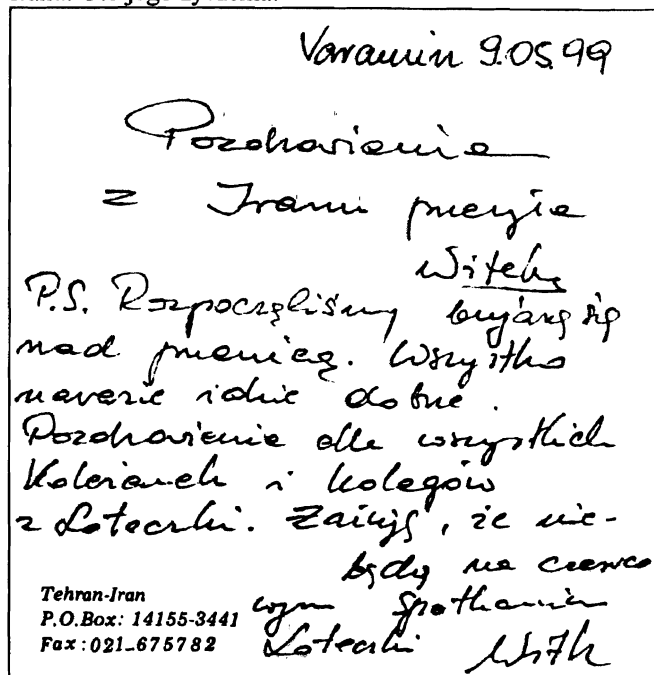 Varamin 9.05.99
Pozdrowienia
z Iranu przesyła
Witek
P.S. Rozpoczęliśmy się
nad pszenicą. Wszystko
na razie idzie dobrze.
Pozdrowienia dla wszystkich
Koleżanek i kolegów
z Loteczki. Żałuję, że nie-
będę na czerwco
wym spotkaniu
Loteczki Witek
Tehran-Iran
P.O.Box: 14155-3441
Fax: 021-675782